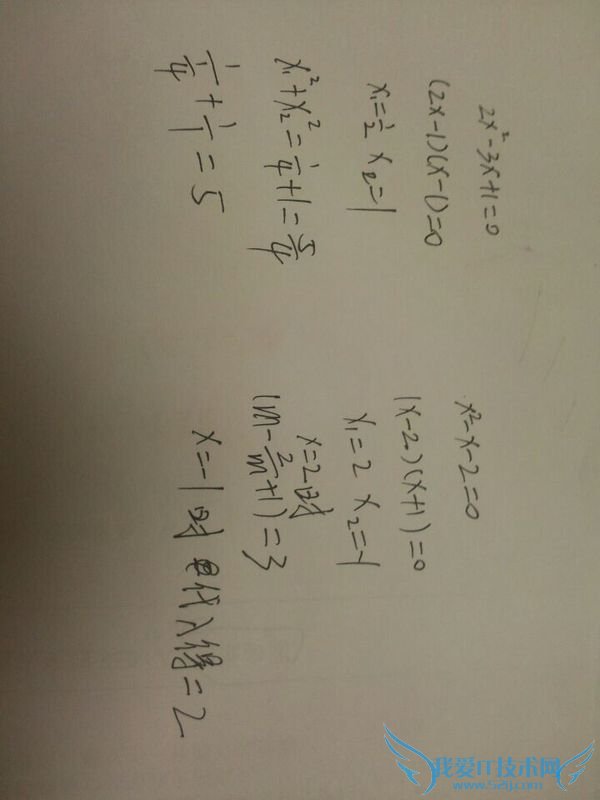 2x²-3x+1=0
(2x-1)(x-1)=0
x₁=1/2 x₂=1
x₁²+x₂²=1/4+1=5/4
1/(1/4)+1/1=5
x²-x-2=0
(x-2)(x+1)=0
x₁=2 x₂=-1
x=2时
(m-2/m+1)=3
x=-1时 代入得=2
我爱IT技术网
www.52ij.com